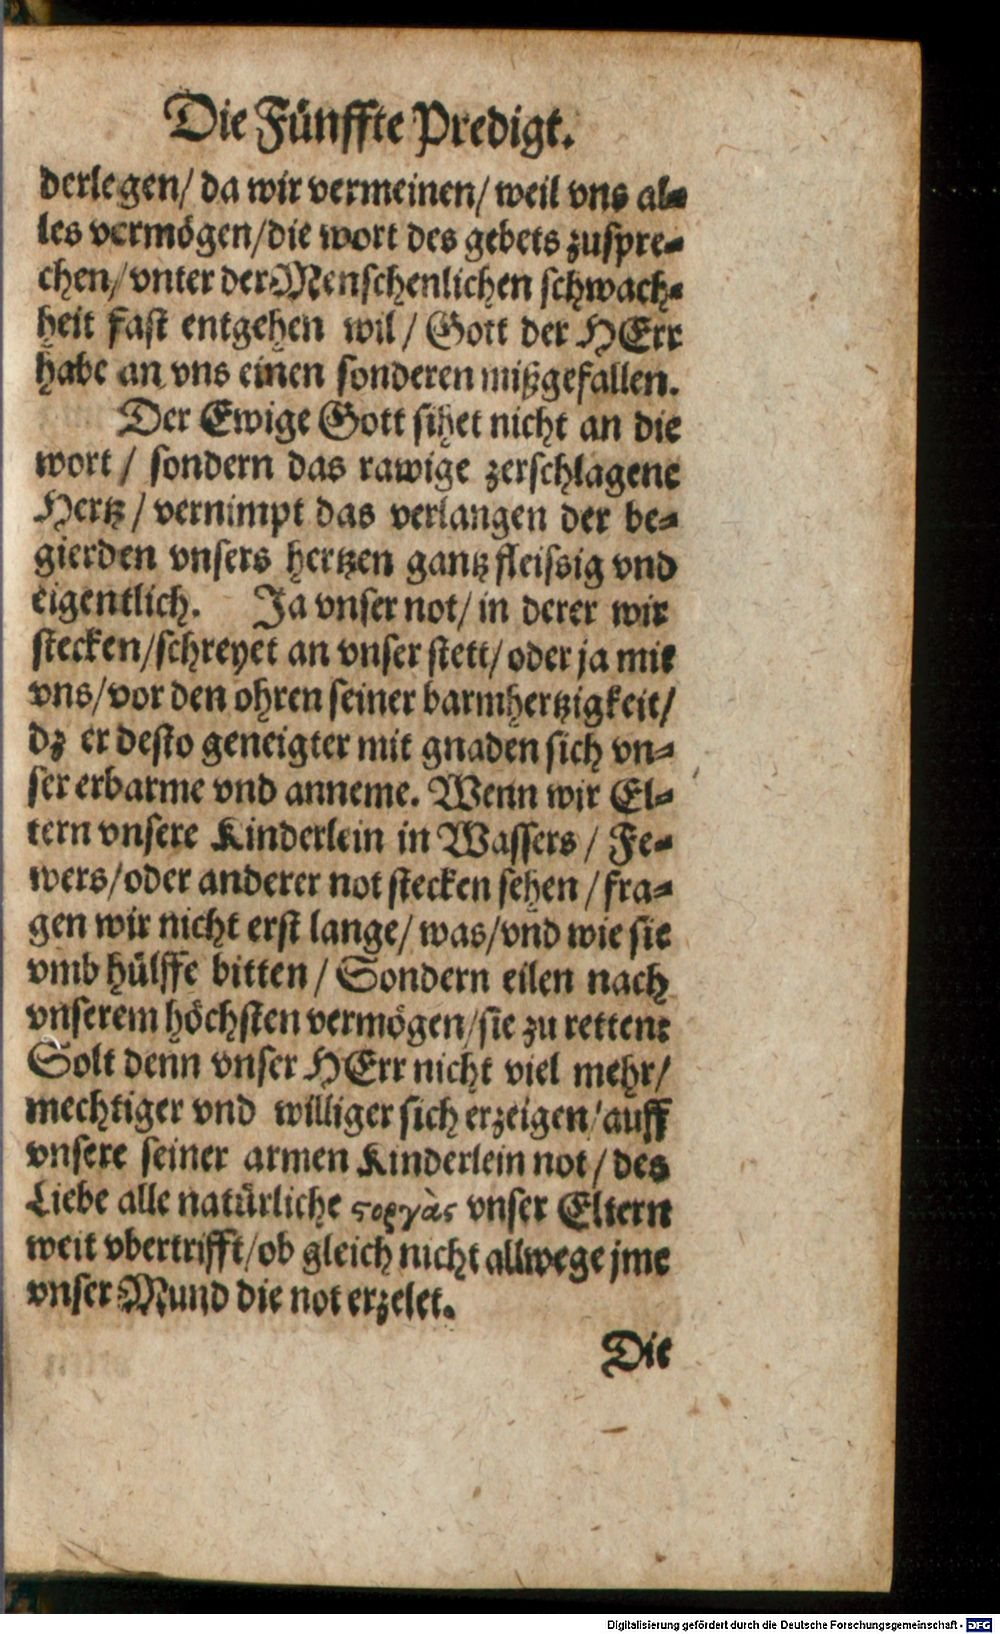 Die Fünffte Predigt.
derlegen/ da wir vermeinen/ weil vns al-
les vermögen/die wort des gebets zuspre-
chen/ vnter der Menschenlichen schwach-
heit fast entgehen wil/ Gott der HErr
habe an vns einen sonderen mißgefallen.
Der Ewige Gott sihet nicht an die
wort/ sondern das rawige zerschlagene
Hertz/ vernimpt das verlangen der be-
gierden vnsers hertzen gantz fleissig vnd
eigentlich. Ja vnser not/ in derer wir
stecken/schreyet an vnser stett/ oder ja mit
vns/vor den ohren seiner barmhertzigkeit/
dz er desto geneigter mit gnaden sich vn-
ser erbarme vnd anneme. Wenn wir El-
tern vnsere Kinderlein in Wassers/ Fe-
wers/oder anderer not stecken sehen/ fra-
gen wir nicht erst lange/ was/vnd wie sie
vmb hülffe bitten/ Sondern eilen nach
vnserem höchsten vermögen/sie zu retten:
Solt denn vnser HErr nicht viel mehr/
mechtiger vnd williger sich erzeigen/ auff
vnsere seiner armen Kinderlein not/ des
Liebe alle natürliche ϛοργὰς vnser Eltern
weit vbertrifft/ob gleich nicht allwege jme
vnser Mund die not erzelet.
Die
Digitalisierung gefördert durch die Deutsche Forschungsgemeinschaft - DFG